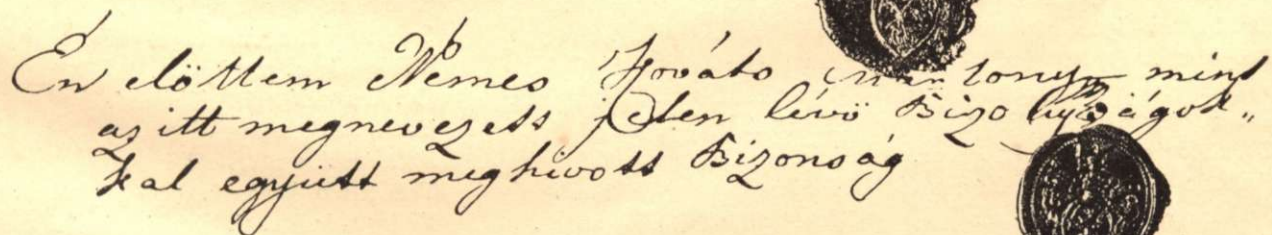 Én előttem Nemes Hováts mint
az itt megnevezett jelen lévő Bizo ságok„
kal együtt meghivott Bizonság